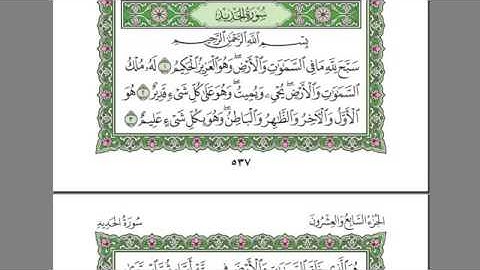 سُورَةُ الحَدِيدِ
بِسْمِ اللَّهِ الرَّحْمَٰنِ الرَّحِيمِ
سَبَّحَ لِلَّهِ مَا فِي السَّمَٰوَٰتِ وَالْأَرْضِ ۖ وَهُوَ الْعَزِيزُ الْحَكِيمُ ١ لَهُۥ مُلْكُ
السَّمَٰوَٰتِ وَالْأَرْضِ ۖ يُحْيِۦ وَيُمِيتُ ۖ وَهُوَ عَلَىٰ كُلِّ شَىْءٍ قَدِيرٌ ٢ هُوَ
الْأَوَّلُ وَالْآخِرُ وَالظَّٰهِرُ وَالْبَاطِنُ ۖ وَهُوَ بِكُلِّ شَىْءٍ عَلِيمٌ ٣
٥٣٧
الجُزءُ السَّابِعُ وَالعِشْرُونَ
سُورَةُ الحَدِيدِ
هُوَ الَّذِي خَلَقَ السَّمَٰوَٰتِ وَالْأَرْضَ فِي سِتَّةِ أَيَّامٍ ثُمَّ اسْتَوَىٰ